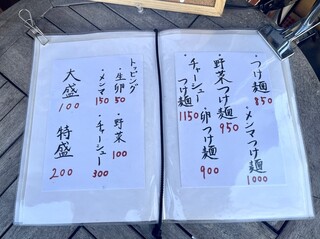 ・つけ麺 850
・メンマつけ麺 1000
・野菜つけ麺 950
・卵つけ麺 900
・チャーシューつけ麺 1150
トッピング
・生卵 50
・野菜 100
・メンマ 150
・チャーシュー 300
大盛 100
特盛 200